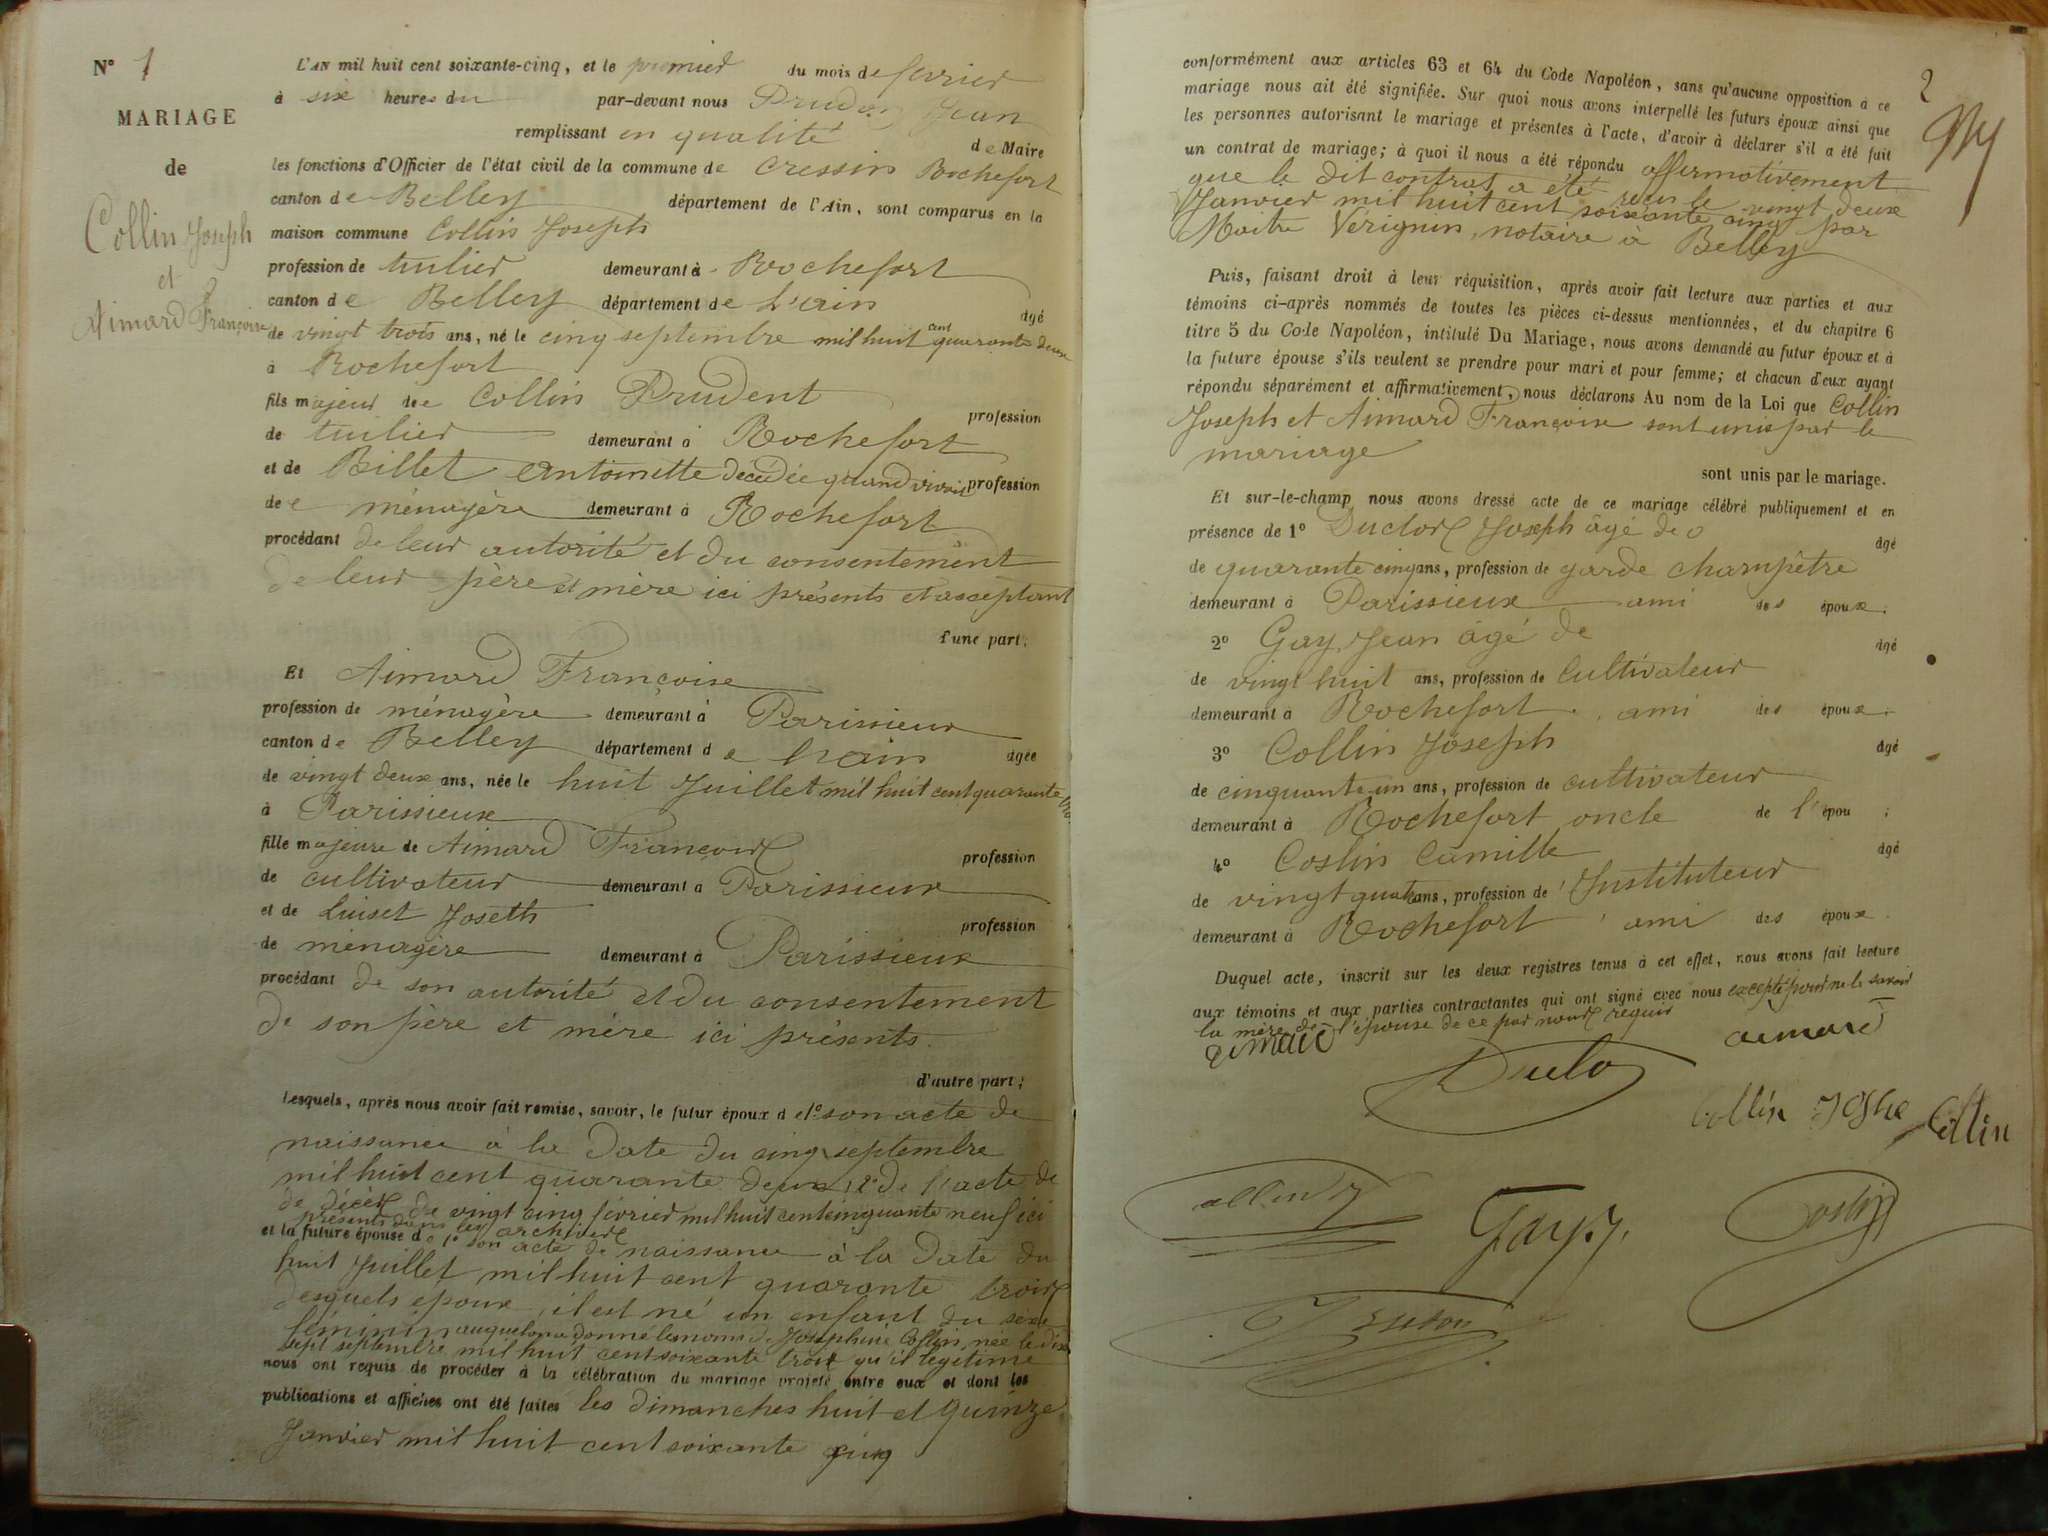 N° 1
MARIAGE
de
Collin Joseph
et
Aimard Françoise
L'AN mil huit cent soixante-cinq, et le premier du mois de février
à six heures du par-devant nous Prudon Jean
remplissant en qualité de Maire
les fonctions d'Officier de l'état civil de la commune de Cressin Rochefort
canton de Belley département de l'Ain, sont comparus en la
maison commune Collin Joseph
profession de tuilier demeurant à Rochefort
canton de Belley département de L'ain âgé
de vingt trois ans, né le cinq septembre mil huit cent quarante deux
à Rochefort
fils majeur de Collin Prudent profession
de tuilier demeurant à Rochefort
et de Billet Antoinette décédée quand vivait profession
de ménagère demeurant à Rochefort
procédant de leur autorité et du consentement
de leur père et mère ici présents et acceptant
d'une part;
Et Aimard Françoise
profession de ménagère demeurant à Parissieux
canton de Belley département de L'ain âgée
de vingt deux ans, née le huit Juillet mil huit cent quarante trois
à Parissieux
fille majeure de Aimard François profession
de cultivateur demeurant à Parissieux
et de Luiset Joseth profession
de ménagère demeurant à Parissieux
procédant de son autorité et du consentement
de son père et mère ici présents.
d'autre part;
Lesquels, après nous avoir fait remise, savoir, le futur époux de 1° son acte de
naissance à la Date du cinq septembre
mil huit cent quarante deux 2° de l'acte de
de décès du vingt cinq février mil huit cent cinquante neuf ici
présents dans les archives
et la future épouse de 1° son acte de naissance à la Date du
huit Juillet mil huit cent quarante trois
Desquels époux, il est né un enfant du sexe
féminin auquel on a donné les noms de Joséphine Collin, née le dix
sept septembre mil huit cent soixante trois qu'il légitime
nous ont requis de procéder à la célébration du mariage projeté entre eux et dont les
publications et affiches ont été faites les dimanches huit et quinze
Janvier mil huit cent soixante cinq
2
conformément aux articles 63 et 64 du Code Napoléon, sans qu'aucune opposition à ce
mariage nous ait été signifiée. Sur quoi nous avons interpellé les futurs époux ainsi que
les personnes autorisant le mariage et présentes à l'acte, d'avoir à déclarer s'il a été fait
un contrat de mariage; à quoi il nous a été répondu affirmativement
que le dit contrat a été reçu le vingt deux
Janvier mil huit cent soixante cinq par
Maitre Vérignin, notaire à Belley
Puis, faisant droit à leur réquisition, après avoir fait lecture aux parties et aux
témoins ci-après nommés de toutes les pièces ci-dessus mentionnées, et du chapitre 6
titre 5 du Code Napoléon, intitulé Du Mariage, nous avons demandé au futur époux et à
la future épouse s'ils veulent se prendre pour mari et pour femme; et chacun d'eux ayant
répondu séparément et affirmativement, nous déclarons Au nom de la Loi que Collin
Joseph et Aimard Françoise sont unis par le
mariage
sont unis par le mariage.
Et sur-le-champ nous avons dressé acte de ce mariage célébré publiquement et en
présence de 1° Duclos Joseph âgé de âgé
de quarante cinq ans, profession de garde champêtre
demeurant à Parissieux ami des époux.
2° Gay Jean âgé de âgé
de vingt huit ans, profession de Cultivateur
demeurant à Rochefort, ami des époux.
3° Collin Joseph âgé
de cinquante un ans, profession de cultivateur
demeurant à Rochefort oncle de l'épou ;
4° Coslin Camille âgé
de vingt quatre ans, profession de Instituteur
demeurant à Rochefort ami des époux.
Duquel acte, inscrit sur les deux registres tenus à cet effet, nous avons fait lecture
aux témoins et aux parties contractantes qui ont signé avec nous excepté pour ne le savoir
la mère de l'épouse de ce par nous requis
aimard aimard
Duclo
Collin Joshe Collin
Collin J
Gay J.
Coslin